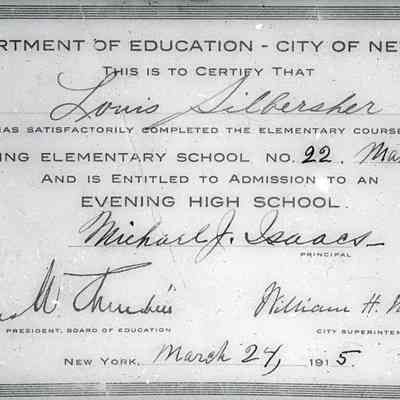 RTMENT OF EDUCATION - CITY OF NE
THIS IS TO CERTIFY THAT
Louis Silbersher
HAS SATISFACTORILY COMPLETED THE ELEMENTARY COURSE
ING ELEMENTARY SCHOOL NO. 22. Ma
AND IS ENTITLED TO ADMISSION TO AN
EVENING HIGH SCHOOL.
Michael J. Isaacs
PRINCIPAL
W. William H.
PRESIDENT, BOARD OF EDUCATION CITY SUPERINTEN
NEW YORK, March 24, 1915.